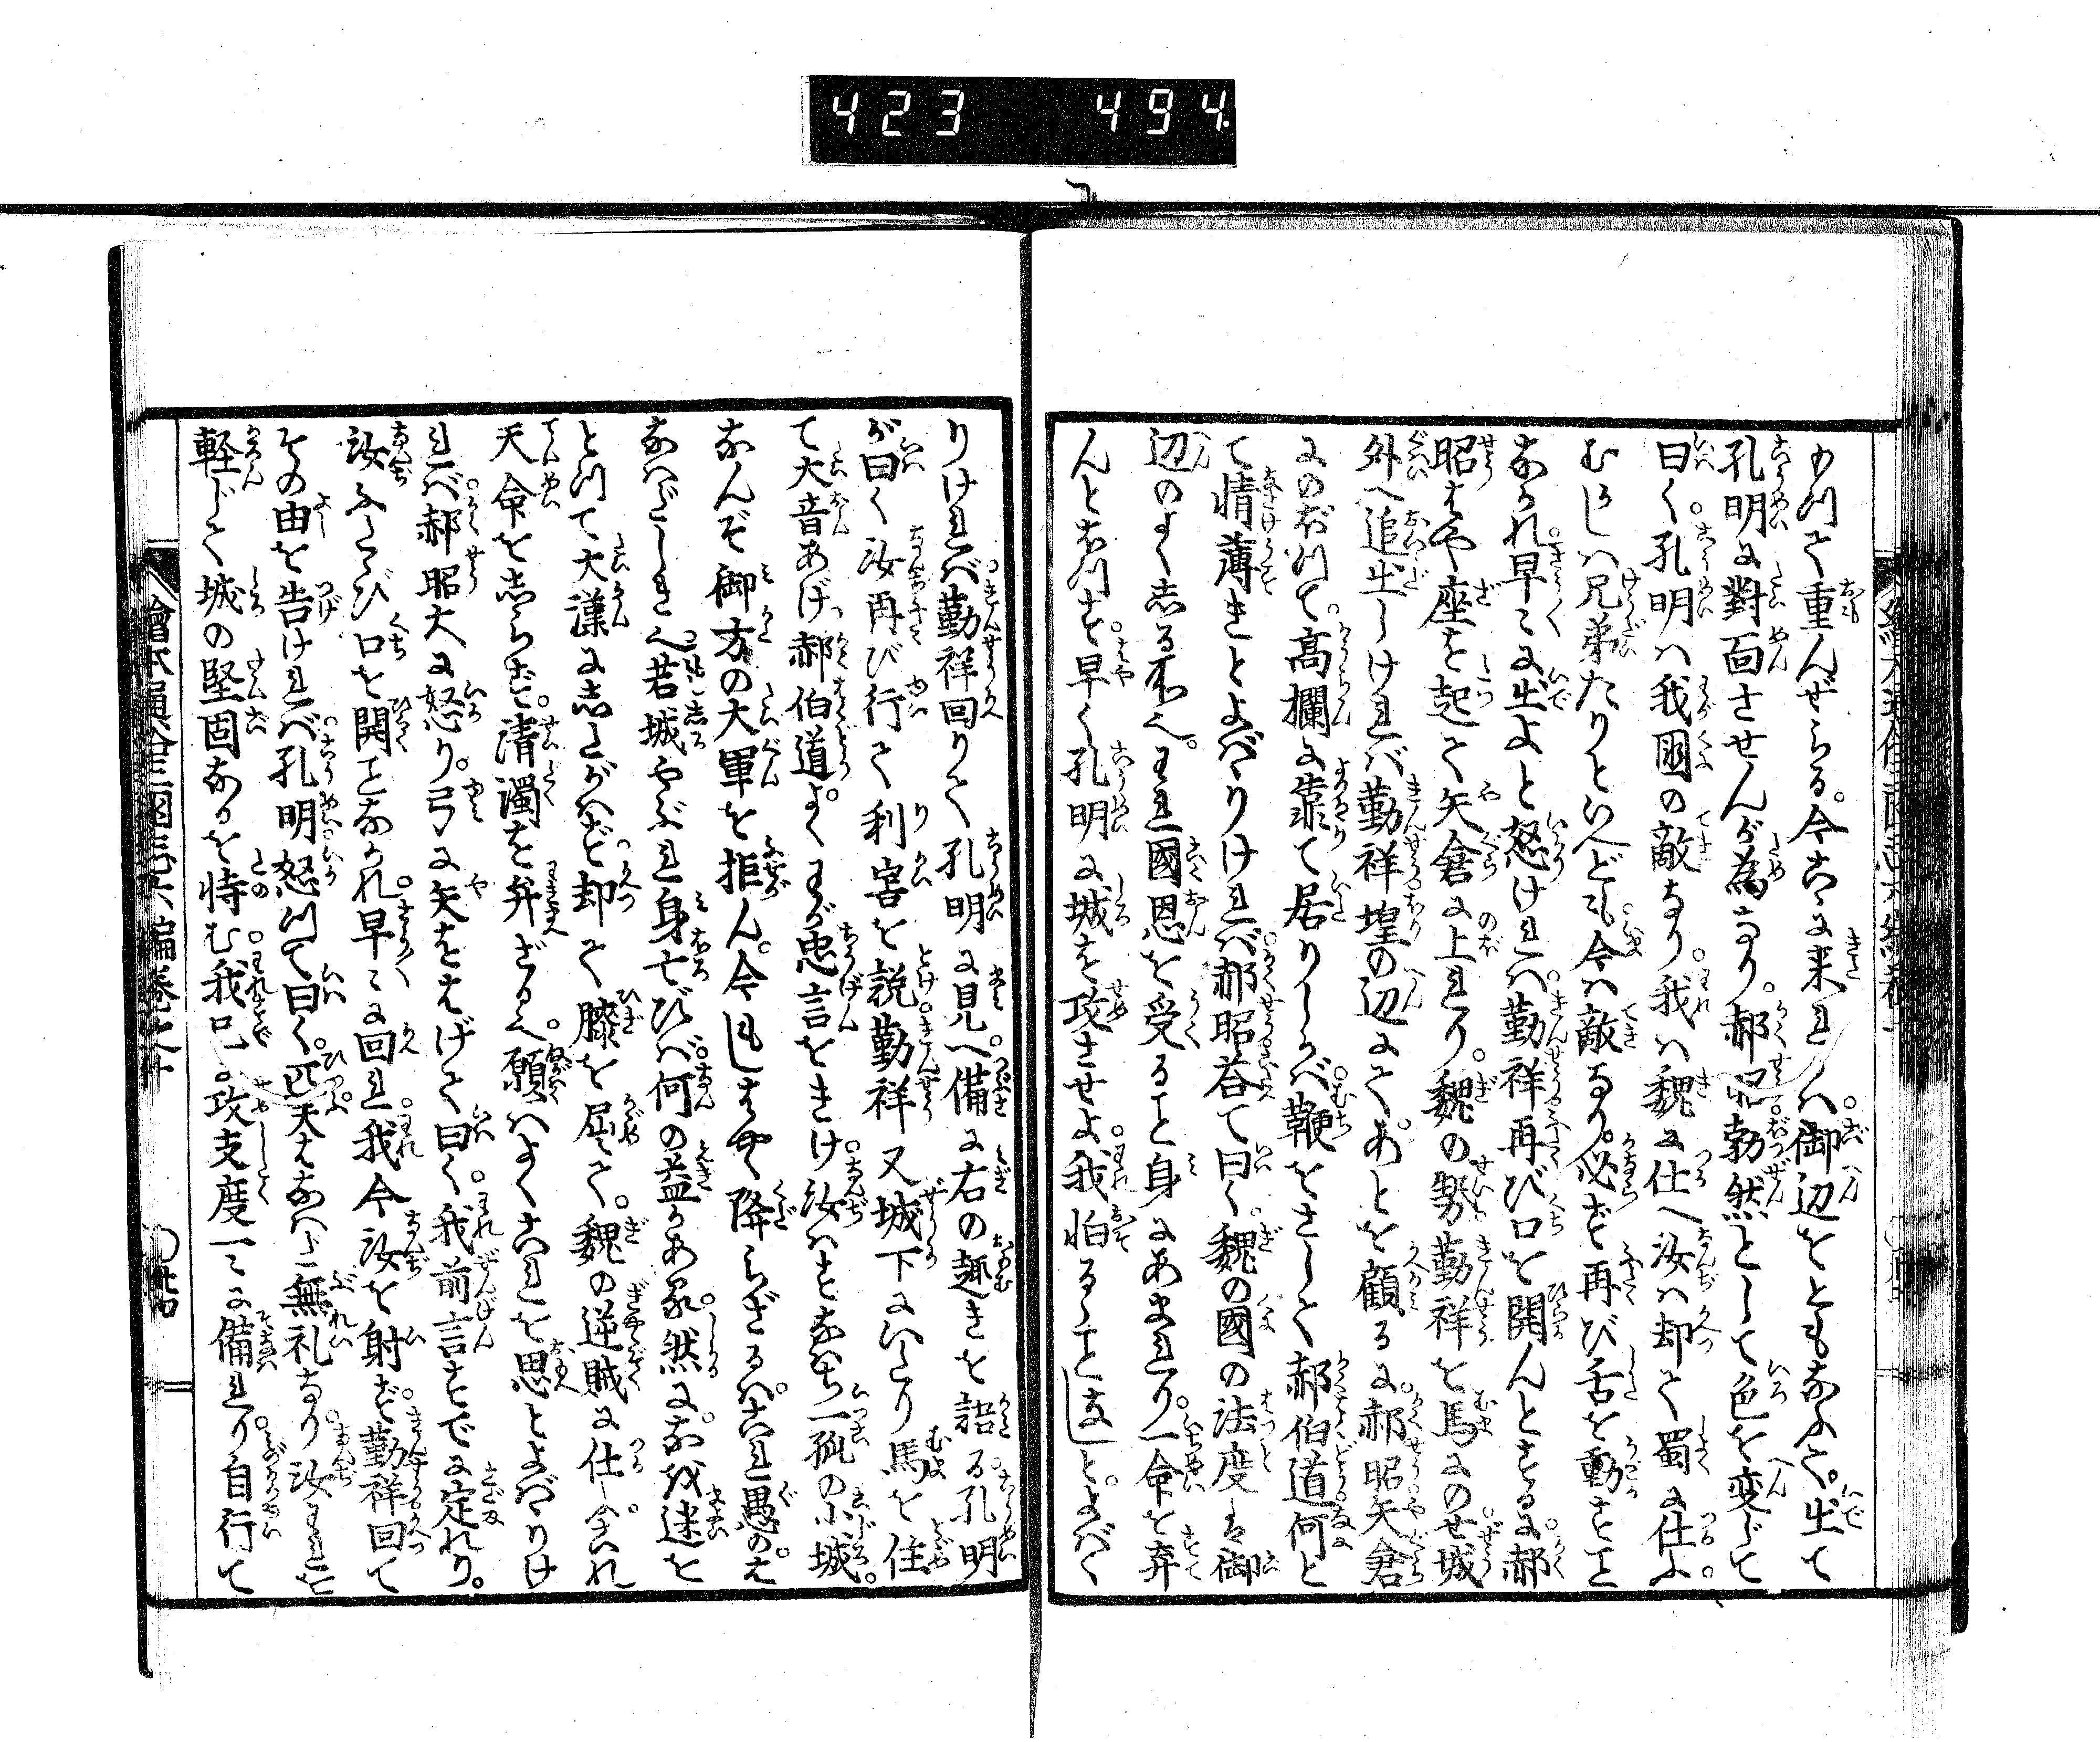 423 494.
めつて重んぜらる。今こゝに来れバ。御辺をともなふて。出て
孔明に對面させんが為なり。郝昭勃然として色を変じて
曰く。孔明ハ我國の敵なり。我ハ魏に仕へ汝ハ却て蜀に仕ふ。
むかしハ兄弟たりといへども今ハ敵なり。必ず再び舌を動すこと
なかれ早々に出よと怒けれバ。勤祥再び口を開んとするに。郝
昭はや座を起て矢倉に上れり。魏の勢勤祥を馬にのせ城
外へ追出しけれバ勤祥壕の辺にて。あとを顧るに。郝昭矢倉
にのぼつて。高欄に靠て居りしかバ。鞭をさして郝伯道何と
て情薄きとよばゝりけれバ。郝昭答て曰く。魏の國の法度は御
辺のよく志る所へ。われ國恩を受ること身にあまれり。一命を弃
んとおつす。早く孔明に城を攻させよ我怕るゝことなしと。よバゝ
りけれバ勤祥回りて孔明に見へ。備に右の趣きを語る。孔明
が曰く汝再び行て利害を説。勤祥又城下にいたり馬を住
て大音あげ。郝伯道よくわが忠言をきけ。汝ハすなはち一孤の小城。
なんぞ御方の大軍を拒ん。今もしはやく降らざるハ。これ愚のは
なハだしきへ若城やぶれ身亡びバ。何の益かあらん。然になを迷を
とつて大漢に志たがハず。却て膝を屈て。魏の逆賊に仕。会れ
天命を志らず。清濁を弁ざるへ。願ハよくこれを思とよばゝりけ
れバ。郝昭大に怒り。弓に矢をはげて曰く。我前言すでに定れり。
汝ふたゝび口を開ことなかれ。早々に回れ我今汝を射ず。勤祥回て
その由を告けれバ。孔明怒つて曰く。匹夫はなハだ無礼なり汝われを
軽じて城の堅固なるを恃む。我已に攻支度一々に備れり。自行て
繪本通俗三國志六編巻之十